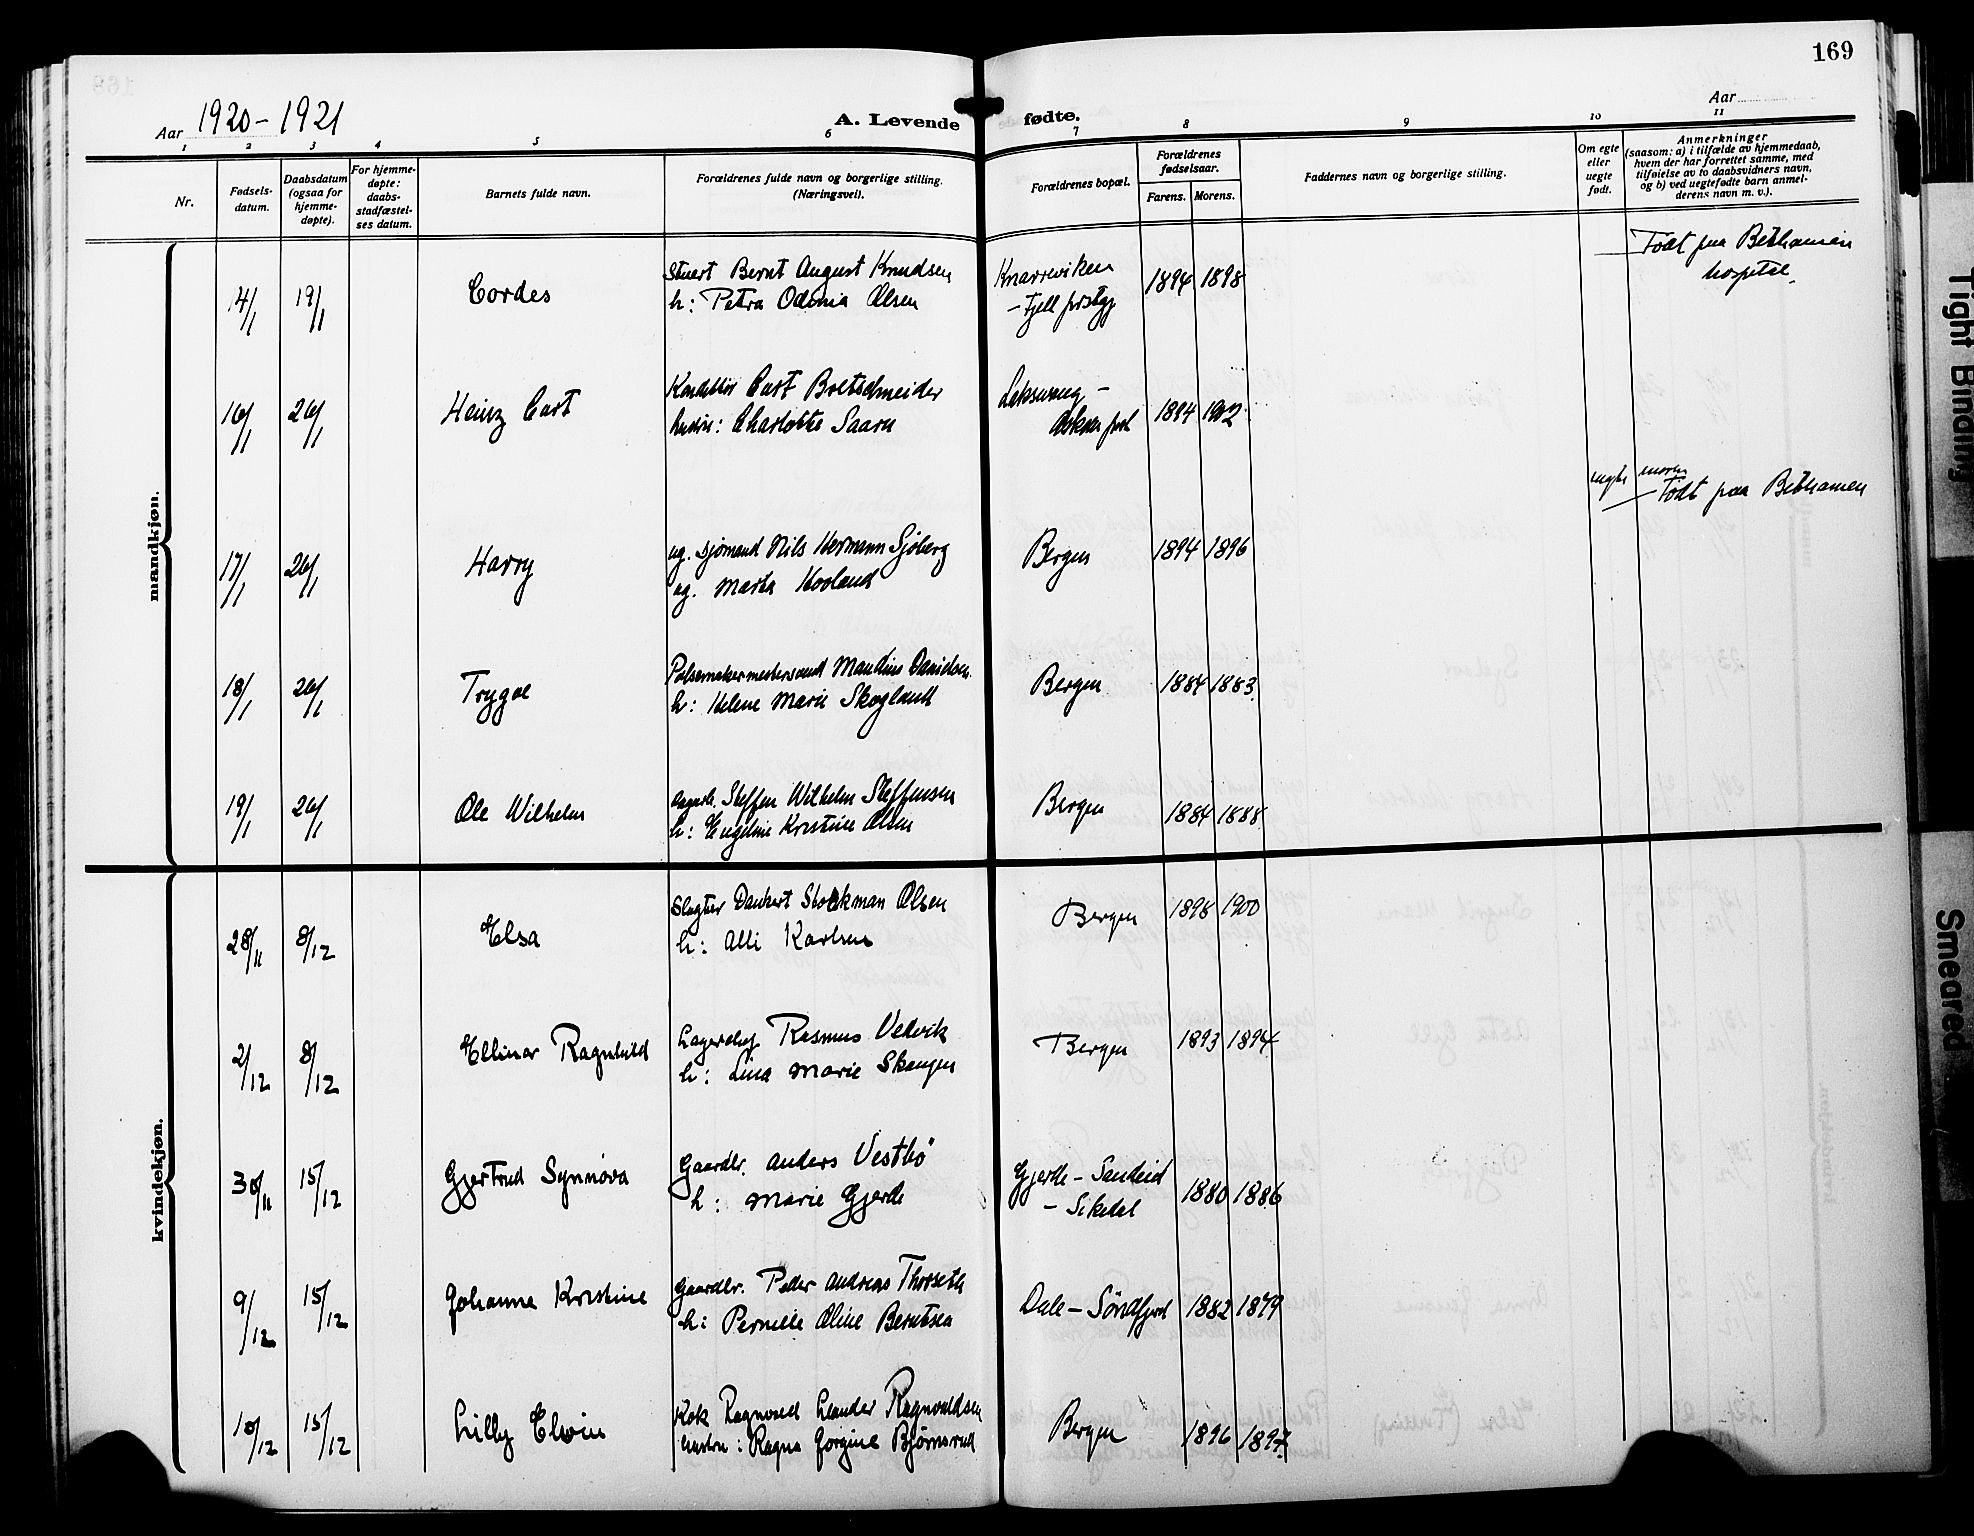 169
Aar 1920-1921
A. Levende fødte.
Aar
1 2 3 4 5 6 7 8 9 10 11
Nr.
Fødsels-
datum.
Daabsdatum
(ogsaa for
hjemme-
døpte).
For hjemme-
døpte:
daabs-
stadfæstel-
ses datum.
Barnets fulde navn.
Forældrenes fulde navn og borgerlige stilling.
(Næringsvei).
Forældrenes bopæl.
Forældrenes
fødselsaar.
Farens. Morens.
Faddernes navn og borgerlige stilling.
Om egte
eller
uegte
født.
Anmerkninger
(saasom: a) i tilfælde av hjemmedaab,
hvem der har forrettet samme, med
tilføielse av to daabsvidners navn,
og b) ved uegtefødte barn anmel-
derens navn m. v.).
mandkjøn.
14/1 19/1 Cordes
Stuert Bernt August Knudsen
h: Petra Odonia Olsen
Knarreviken
- Fjell prstgj
1894 1898
Født paa Bethanien
hospital.
16/1 26/1 Heinz Curt
Konditor Curt Bretschneider
hustru: Charlotte Saarn
Askøen prst
1894 1902
17/1 26/1 Harry
ug. sjømand Nils Hermann Sjøberg
ug. Marta Hovland
Bergen 1894 1896
uegte moren
Født paa Bethanien
18/1 26/1 Trygve
Pølsemakermestersvend Mandius Danielsen
h: Helene Marie Skoglund
Bergen 1884 1883.
19/1 26/1 Ole Wilhelm
Steffen Wilhelm Steffensen
h: Engeline Kristine Olsen
Bergen 1884 1888
kvindekjøn.
28/11 8/12 Elsa
Slagter Dankert Stockman Olsen
h: Alli Karlsen
Bergen 1898 1900
2/12 8/12 Ellinor Ragnhild
Lagerchef Rasmus Vedvik
h: Lina Marie Skaugen
Bergen 1893 1894
30/11 15/12 Gjertrud Synnøva
Gaardbr. Anders Vestbø
h: Marie Gjerde
Gjerde - Sandeid
- Sikedal
1880 1886
9/12 15/12 Johanna Kristine
Gaardbr. Peder Andreas Thorseth
h: Pernille Oline Berntsen
Dale - Søndfjord 1882 1879
10/12 15/12 Lilly Elvin
Kok Ragnvald Leander Ragnvaldsen
hustru: Ragna Jorgine Bjørnsrud
Bergen 1896 1897.
Tight Binding
Smeared